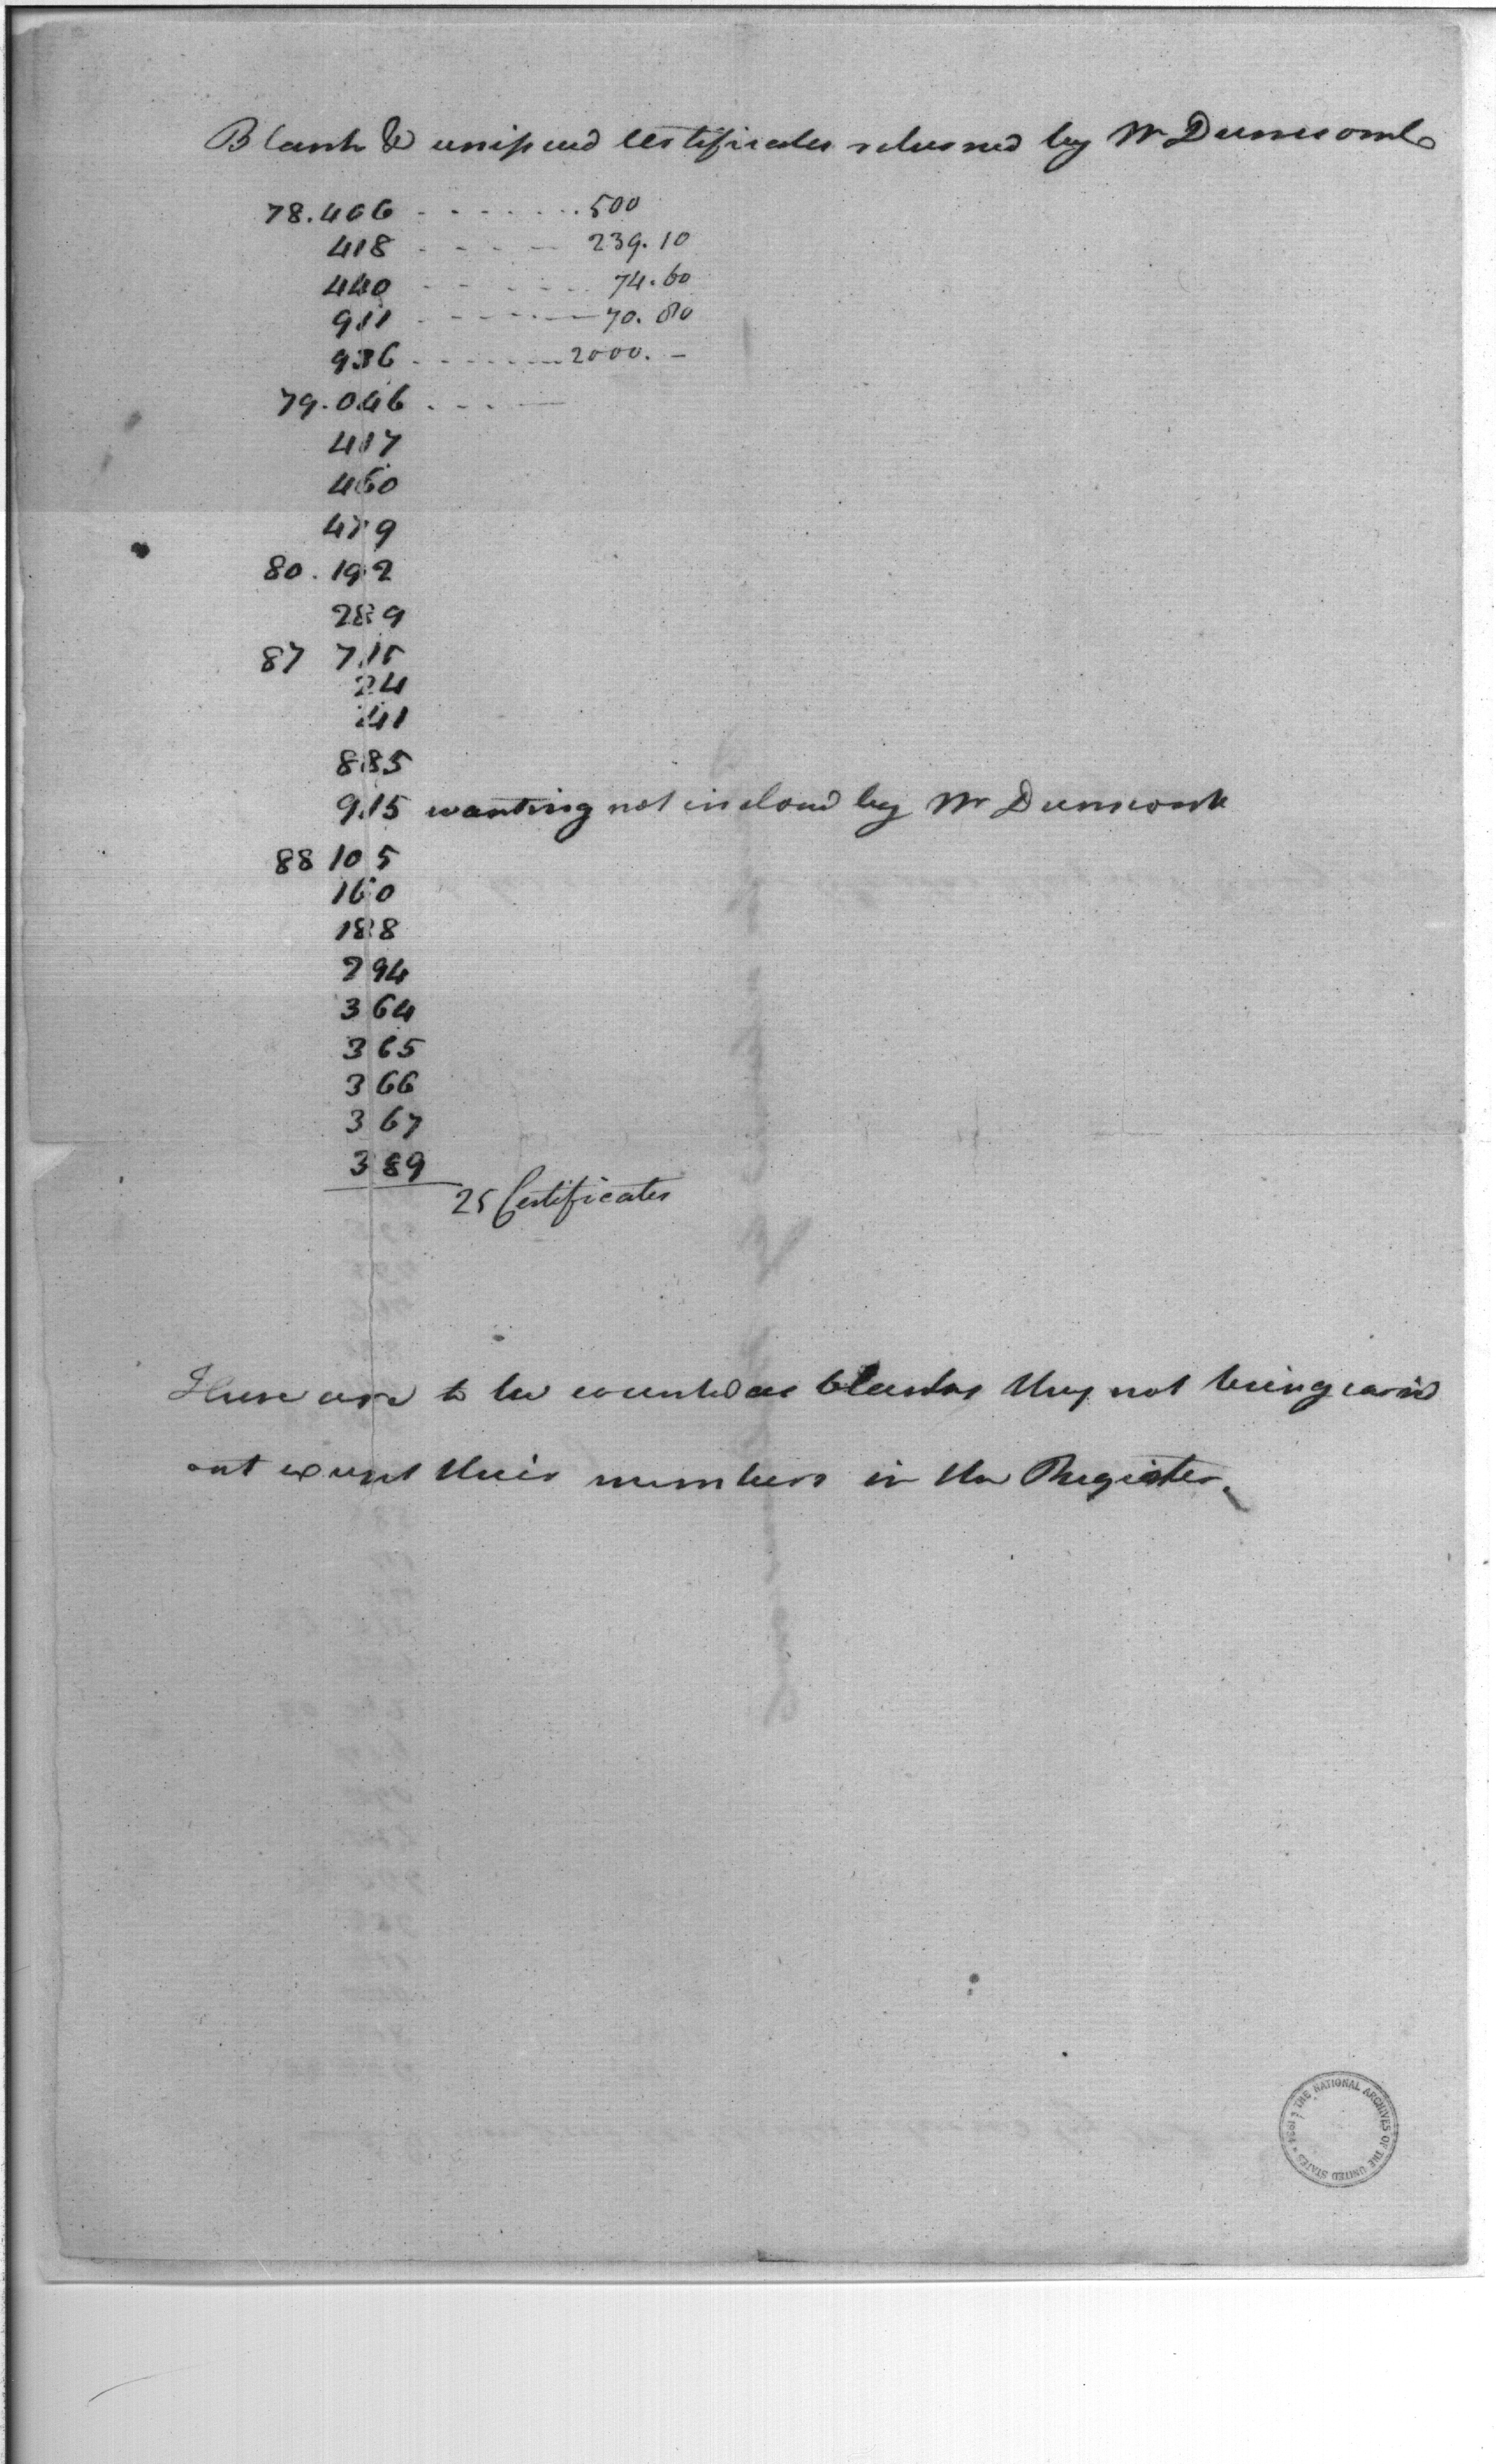 Blank & unissued Certificates returned by Mr Dunscomb
78.406 - - - - - - - 500
418 - - - - - 239.10
440 - - - - - - 74.60
911 - - - - - - 70.80
936 - - - - - - - 2000. -
79.046 - - - -
417
460
479
80.192
289
87 715
24
41
885
915 wanting not inclosed by Mr Dunscomb
88 105
160
188
294
364
365
366
367
389
25 Certificates
These are to be counted as blanks they not being carried
out except their numbers in the Register.
THE NATIONAL ARCHIVES OF THE UNITED STATES 1934